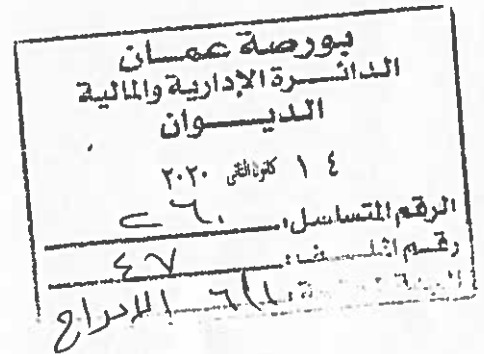 بورصة عمان
الدائرة الإدارية والمالية
الديوان
١٤ كانون الثاني ٢٠٢٠
الرقم المتسلسل:
رقم الملف: ٤٧
الجهة المختصة: الإدراج